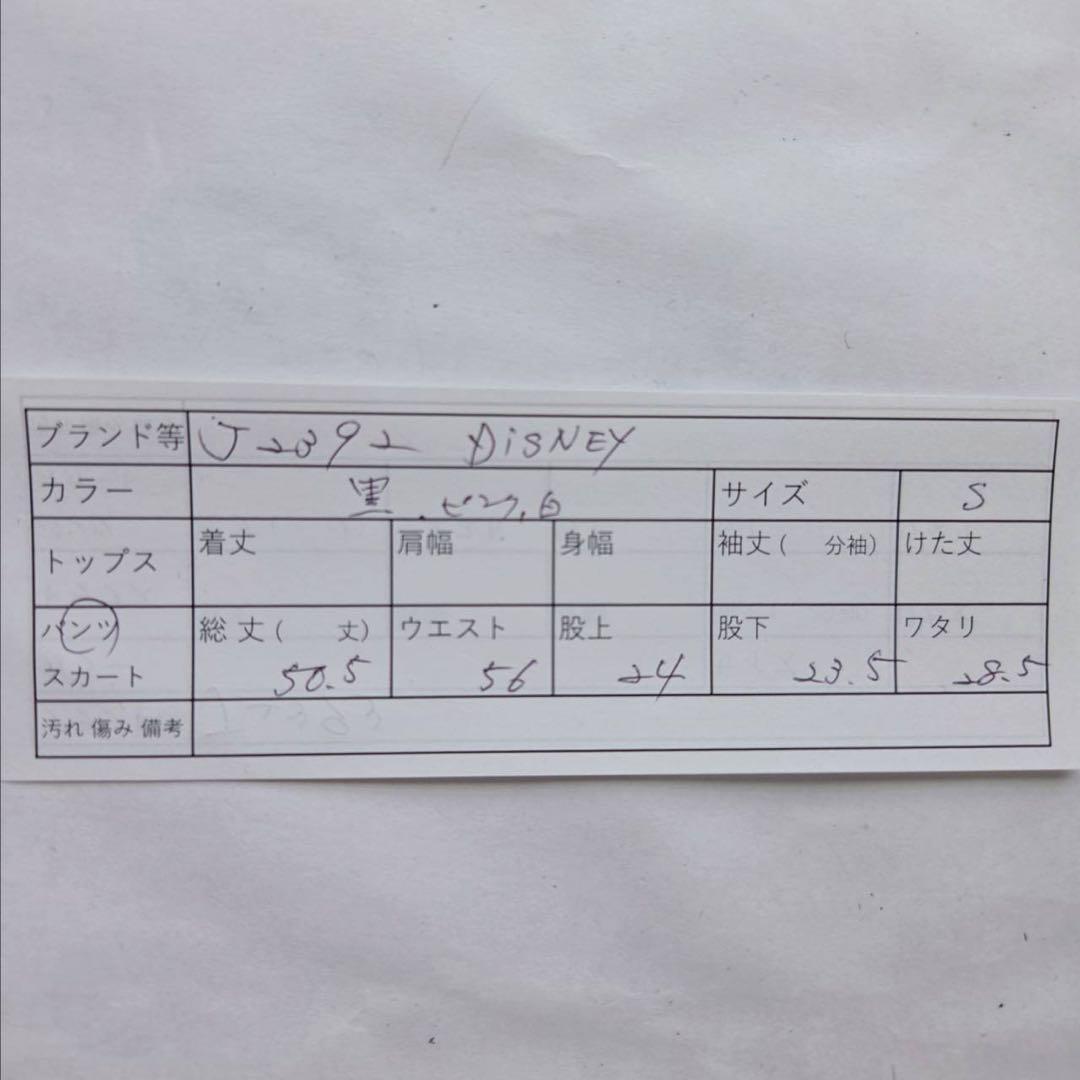 ブランド等 J2392 DiSNEY
カラー 黒.ピンク.白 サイズ S
トップス 着丈 肩幅 身幅 袖丈( 分袖) けた丈
パンツ 総丈( 丈) ウエスト 股上 股下 ワタリ
スカート 50.5 56 24 23.5 28.5
汚れ 傷み 備考